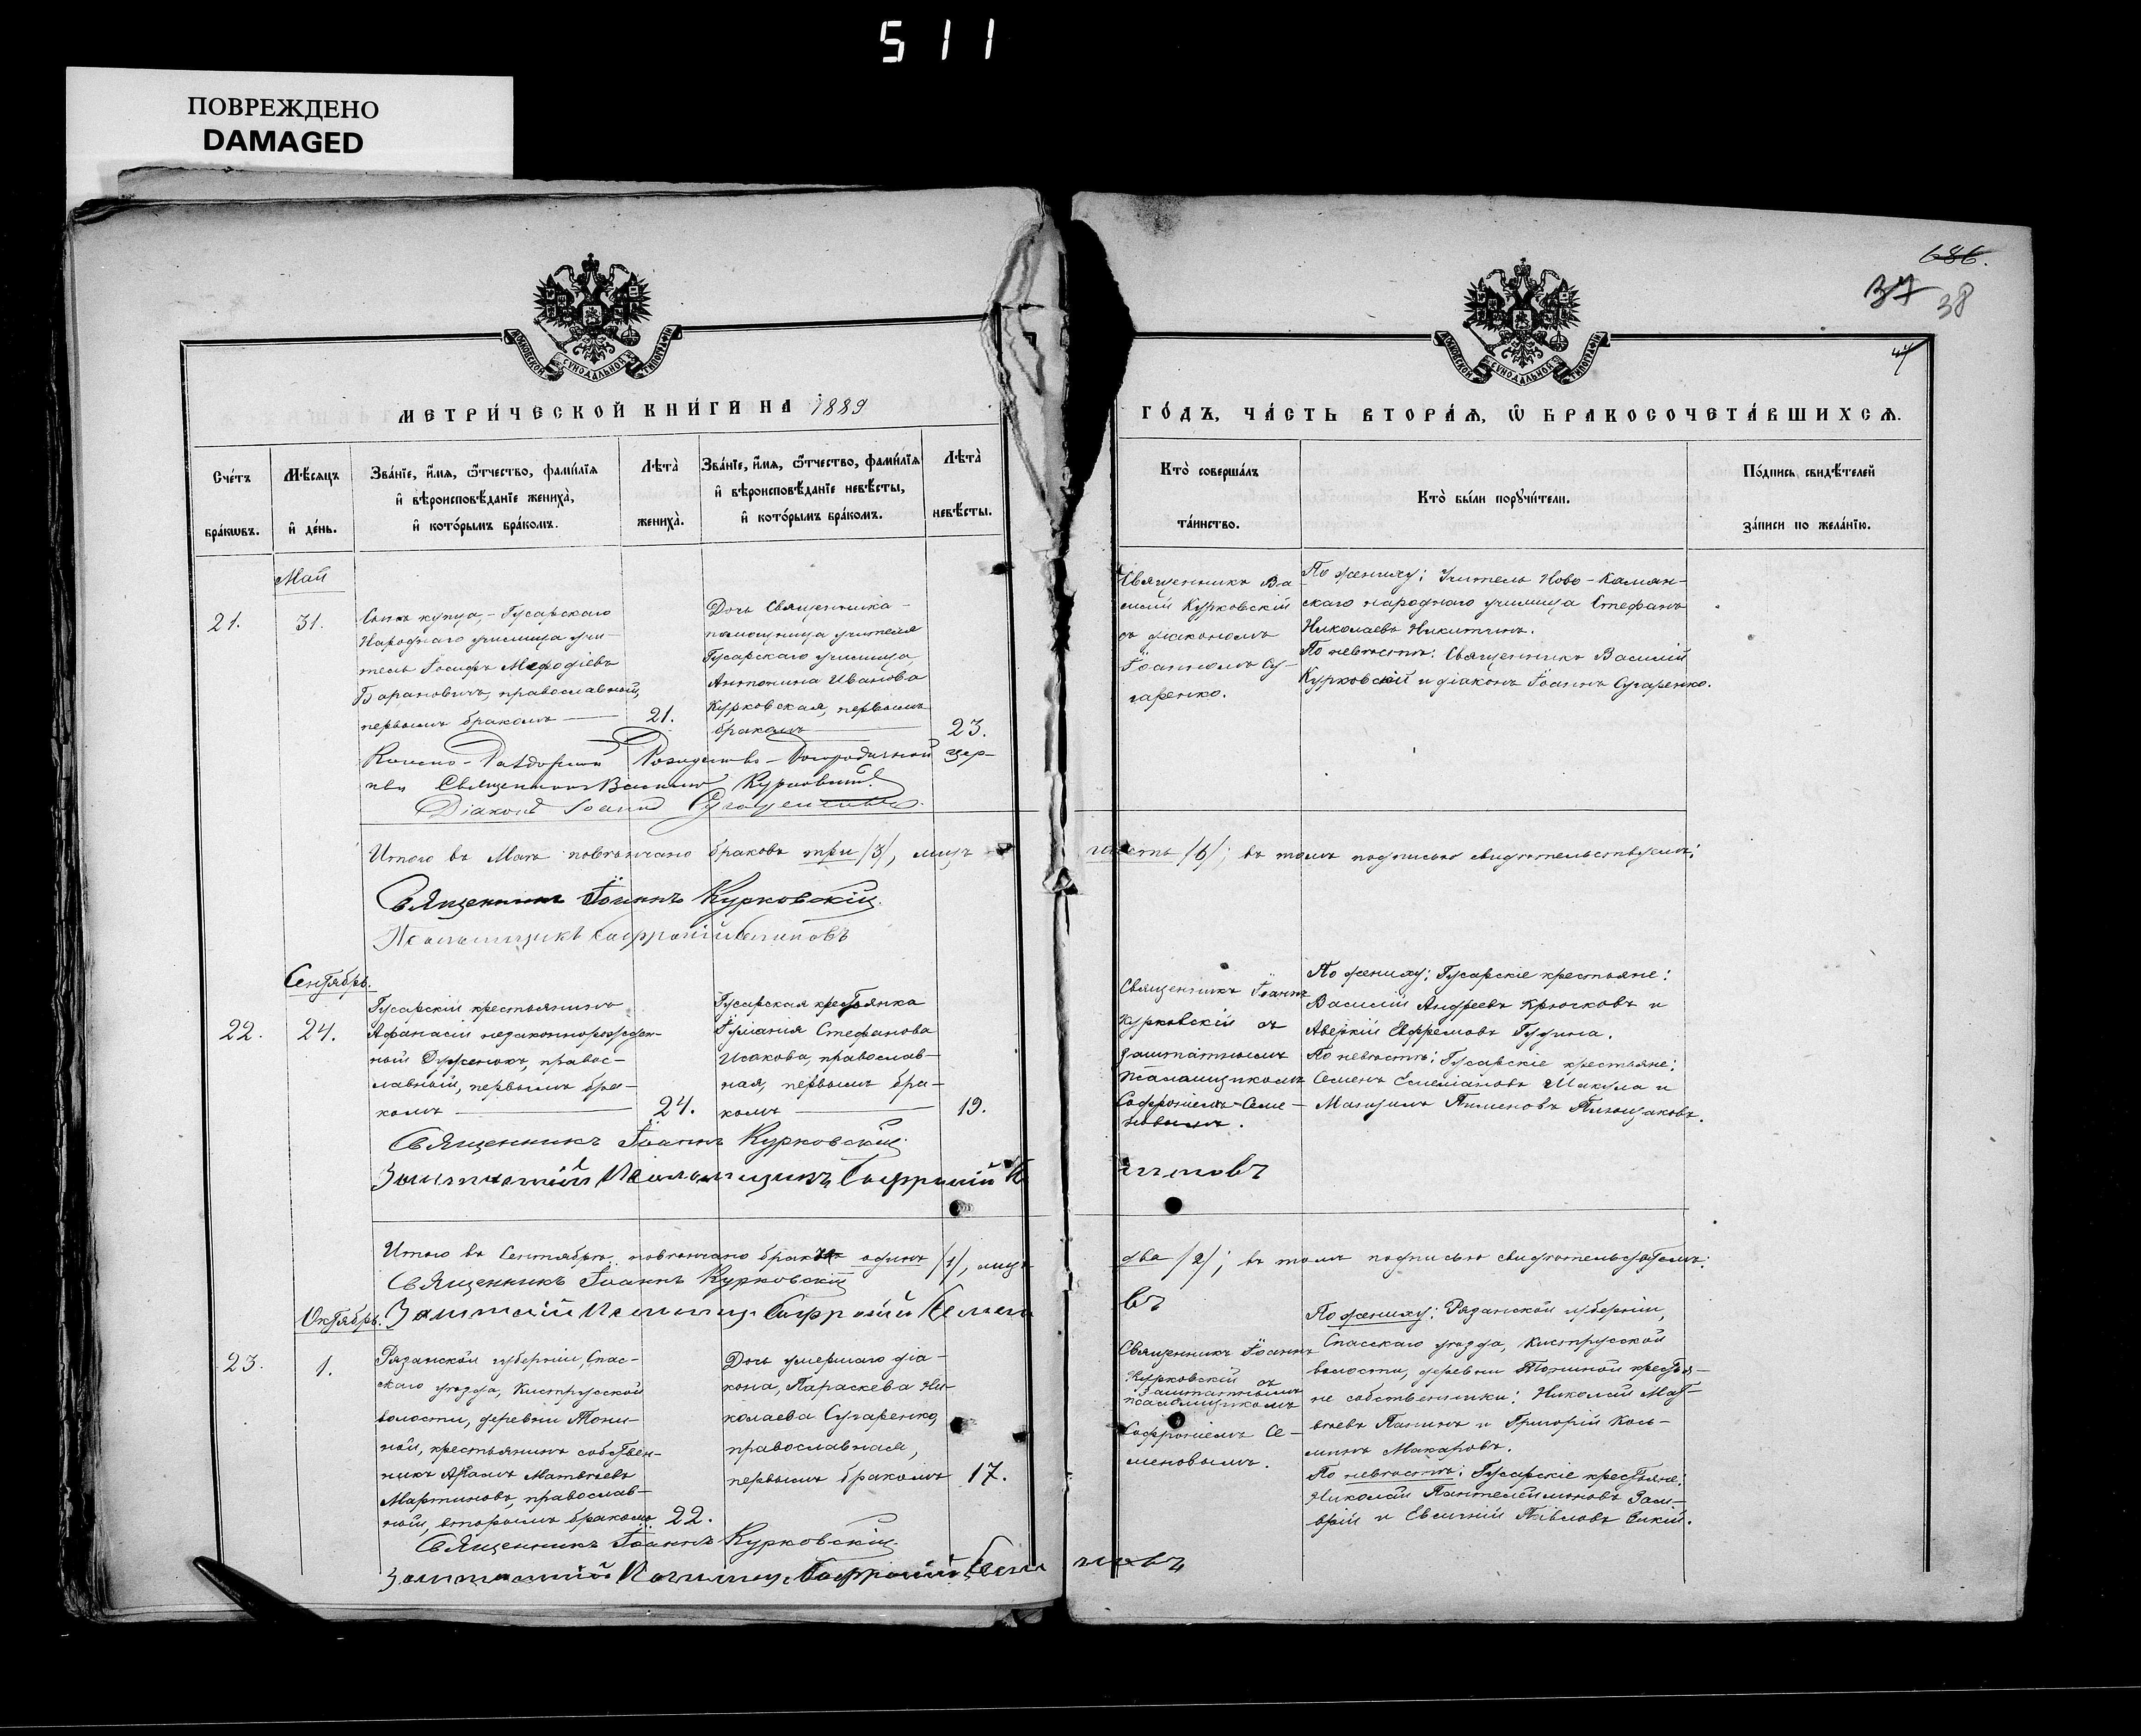 511
ПОВРЕЖДЕНО
DAMAGED
686.
37 38
МОСКОВСКОЙ СѴНОДАЛЬНОЙ ТИПОГРАФІИ
МОСКОВСКОЙ СѴНОДАЛЬНОЙ ТИПОГРАФІИ
МЕТРИ́ЧЕСКОЙ КНИ́ГИ НА 1889
ГО́ДЪ, ЧА́СТЬ ВТОРА́Ѧ, Ѿ БРАКОСОЧЕТА́ВШИХСѦ.
Сче́тъ бра́кѡвъ.
Мѣ́сѧцъ и҆ де́нь.
Зва́нїе, и҆́мѧ, ѻ҆́тчество, фами́лїѧ
и҆ вѣроисповѣ́данїе жениха̀,
и҆ кото́рымъ бра́комъ.
Лѣ́та̀ жениха̀.
Зва́нїе, и҆́мѧ, ѻ҆́тчество, фами́лїѧ
и҆ вѣроисповѣ́данїе невѣ́сты,
и҆ кото́рымъ бра́комъ.
Лѣ́та̀ невѣ́сты.
Кто̀ соверша́лъ
та́инство.
Кто̀ бы́ли порꙋчи́тели.
По́дпись свидѣ́телей
за́писи по жела́нїю.
Май
21.
31.
Сынъ купца, - Гусарскаго
Народнаго училища учи-
тель Іосифъ Меѳодіевъ
Барановичъ, православный,
первымъ бракомъ
21.
Дочь Священника -
помощница учителя
Гусарскаго училища
Антонина Иванова
Курковская, первымъ
бракомъ
23.
Священникъ Ва-
силій Курковскій
съ діакономъ
Іоанномъ Су-
гаренко.
По жениху: Учитель Ново-Каман-
скаго народнаго училища Стефанъ
Николаевъ Никитинъ.
По невѣстѣ: Священникъ Василій
Курковскій и діаконъ Іоаннъ Сугаренко.
Рождество-Богородичной цер-
кви Священникъ Василій Курковскій
Діаконъ Іоаннъ
Итого въ Маѣ повѣнчано браковъ три /3/, лицъ
шесть /6/; въ томъ подписью свидѣтельствуемъ:
Священникъ Іоаннъ Курковскій
Псаломщикъ Софроній Семеновъ
Сентябрь.
22.
24.
Гусарскій крестьянинъ
Афанасій незаконнорожден-
ный Дженокъ, правос-
лавный, первымъ бра-
комъ
24.
Гусарская крестьянка
Іуліанія Стефанова
Исакова, православ-
ная, первымъ бра-
комъ
19.
Священникъ Іоаннъ
Курковскій съ
заштатнымъ
псаломщикомъ
Софроніемъ Семе-
новымъ.
По жениху: Гусарскіе крестьяне:
Василій Андреевъ Крючковъ и
Аверкій Евфремовъ Гудина.
По невѣстѣ: Гусарскіе крестьяне:
Семенъ Емеліановъ Макула и
Максимъ Пименовъ
Священникъ Іоаннъ Курковскій.
Заштатный Псаломщикъ Софроній
Итого въ Сентябрѣ повѣнчано бракъ одинъ /1/, лицъ
два /2/; въ томъ подписью свидѣтельствуемъ:
Священникъ Іоаннъ Курковскій
Заштатный Псаломщ. Софроній Семено
въ
Октябрь.
23.
1.
Рязанской губерніи, Спас-
скаго уѣзда, Киструсской
волости, деревни Тони-
ной, крестьянинъ собствен-
никъ Адамъ Матвѣевъ
Мартиновъ, православ-
ный, вторымъ бракомъ
22.
Дочь умершаго діа-
кона, Параскева Ни-
колаева Сугаренко,
православная,
первымъ бракомъ
17.
Священникъ Іоаннъ
Курковскій съ
заштатнымъ
псаломщикомъ
Софроніемъ Се-
меновымъ.
По жениху: Рязанской губерніи,
Спасскаго уѣзда, Киструсской
волости, деревни Тониной крестья-
не собственники: Николай Мат-
вѣевъ Панинъ и Григорій Кось-
минъ Макаровъ.
По невѣстѣ: Гусарскіе крестьяне:
Николай Пантелеймоновъ Зам-
врій и Евгеній Павловъ
Священникъ Іоаннъ Курковскій.
Заштатный Псаломщ. Софроній Семе
новъ